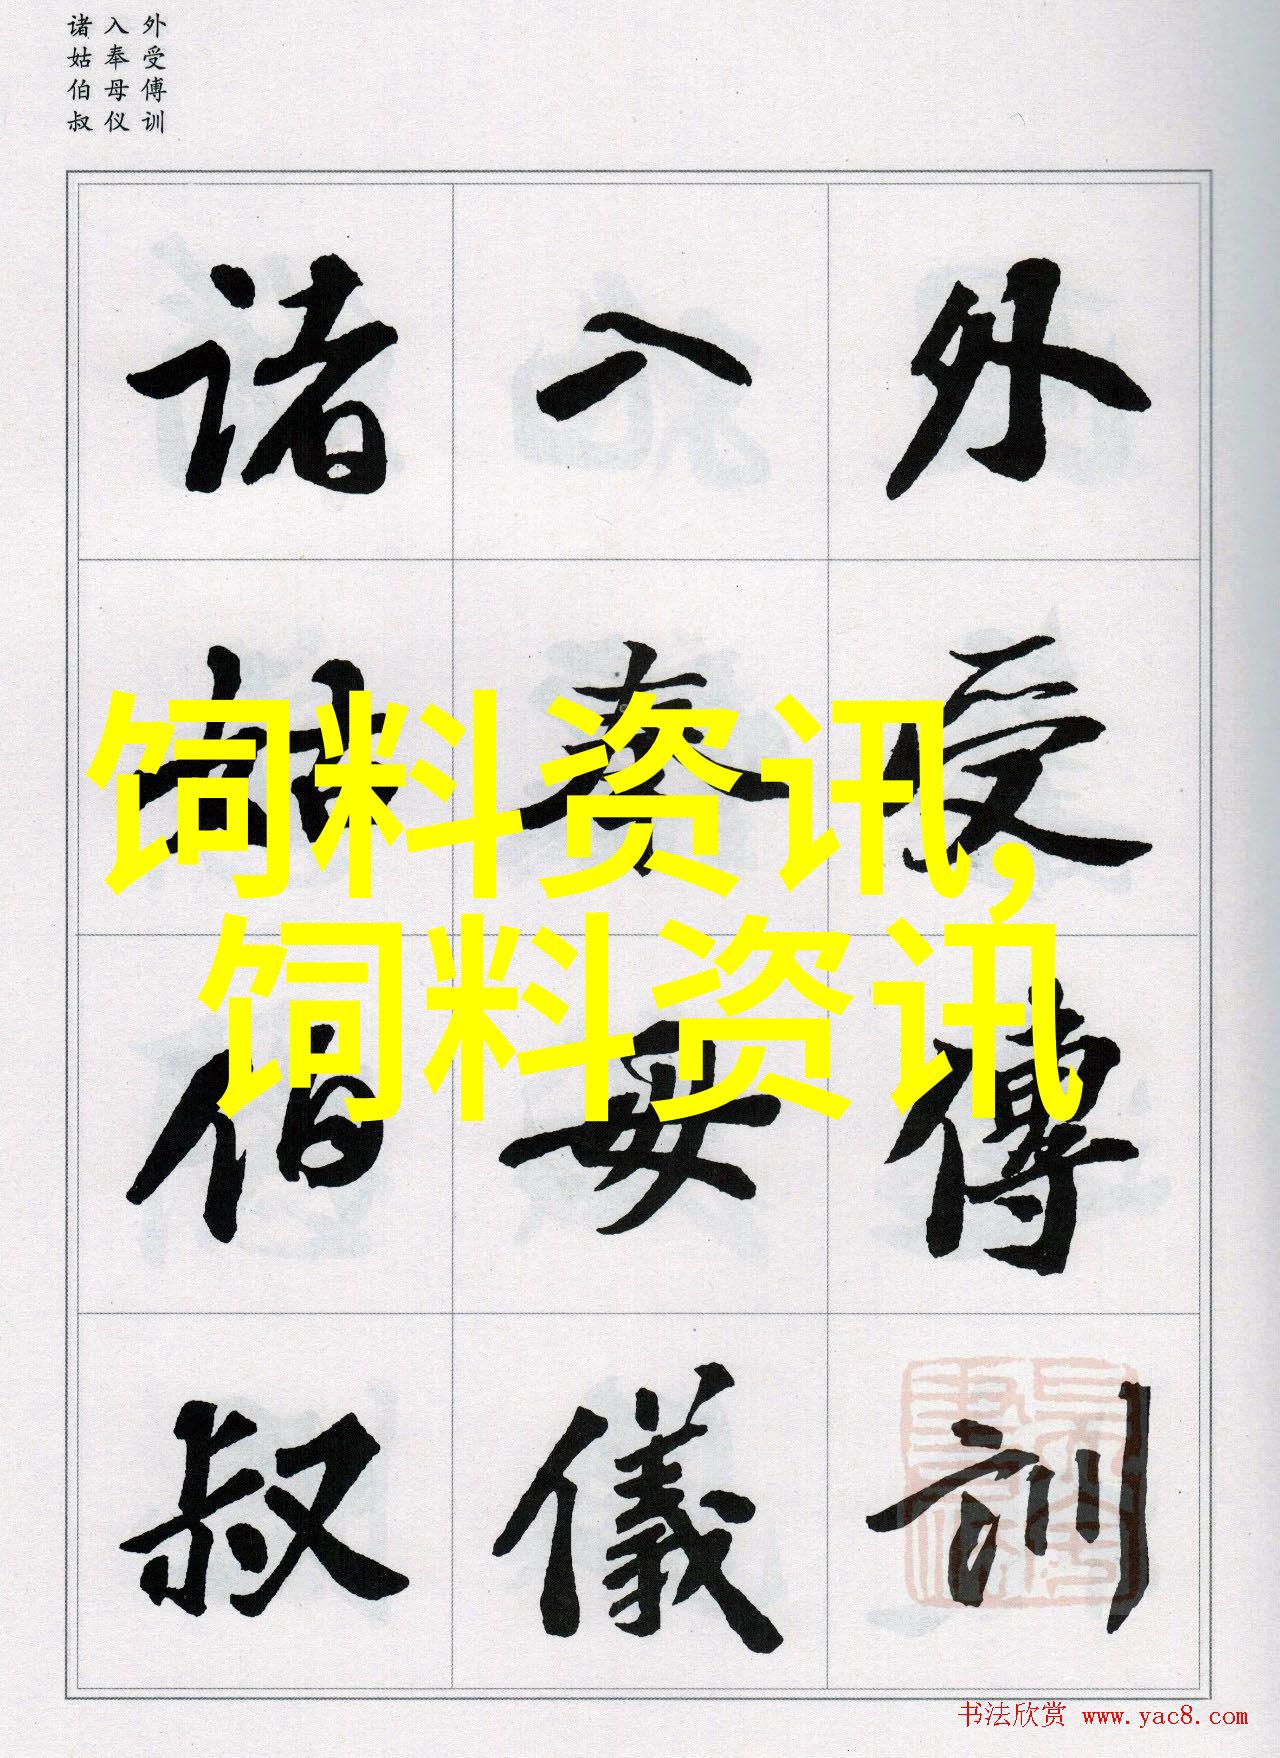 外受傅训
入奉母仪
诸姑伯叔
外受傅訓
入奉母儀
诸姑伯叔
饲料资讯,
饲料资讯
书法欣赏 www.yac8.com